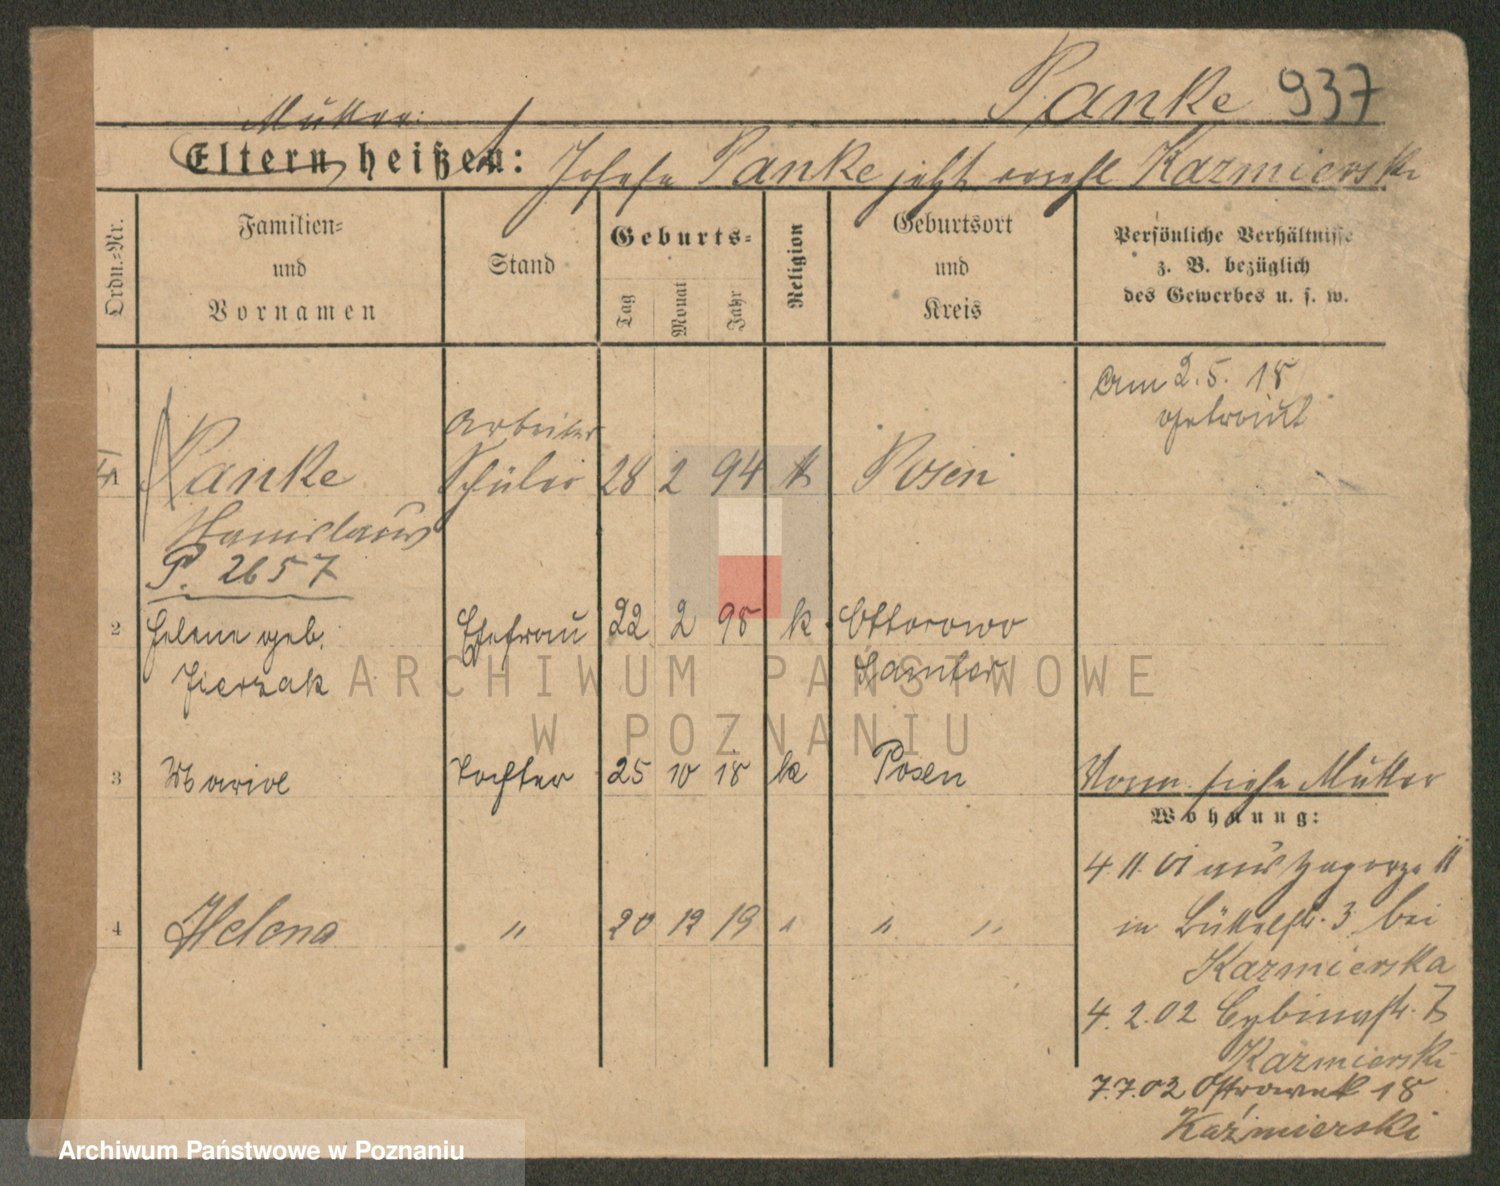 Panke 937
Mutter:
Eltern heißen: Josefa Panke jetzt verehl Kazmierski
Ordn.-Nr.
Familien-
und
Vornamen
Stand
Geburts-
Tag
Monat
Jahr
Religion
Geburtsort
und
Kreis
Persönliche Verhältnisse
z. B. bezüglich
des Gewerbes u. s. w.
Am 2.5.18
getraut
Arbeiter
Panke Schüler 28 2 94 k Posen
Stanislaus
P. 2657
2 Helene geb. Ehefrau 22 2 98 k Ottorowo
Jierzak Samter
ARCHIWUM PAŃSTWOWE
W POZNANIU
3 Marie Tochter 25 10 18 k Posen
Vorm. siehe Mutter
Wohnung:
4.11.01 aus Zagorze 11
4 Helena " 20 12 19 " " "
in Büttelstr. 3 bei
Kazmierska
4.2.02 Cybinastr. 7
Kazmierski
7.7.02 Ostrowek 18
Kaźmierski
Archiwum Państwowe w Poznaniu